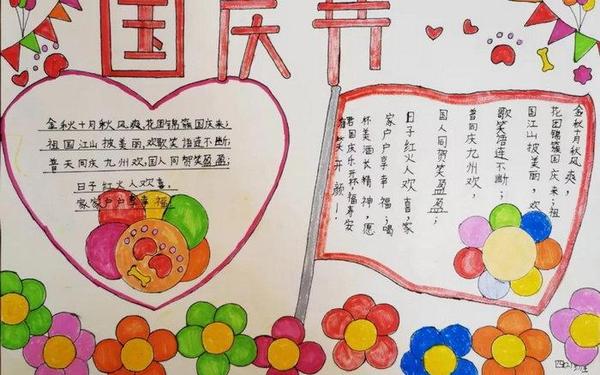 国庆节
金秋十月秋风爽,花团锦簇国庆来;
祖国江山披美丽,欢歌笑语连不断;
普天同庆九州欢,国人同贺笑盈盈;
日子红火人欢喜,
家家户户享幸福
金秋十月秋风爽,
花团锦簇国庆来;祖
国江山披美丽,欢
歌笑语连不断;
普天同庆九州欢,
国人同贺笑盈盈;
日子红火人欢喜,家
家户户享幸福;喝
杯美酒长精神,愿
君国庆乐开怀福寿安
笑开颜!